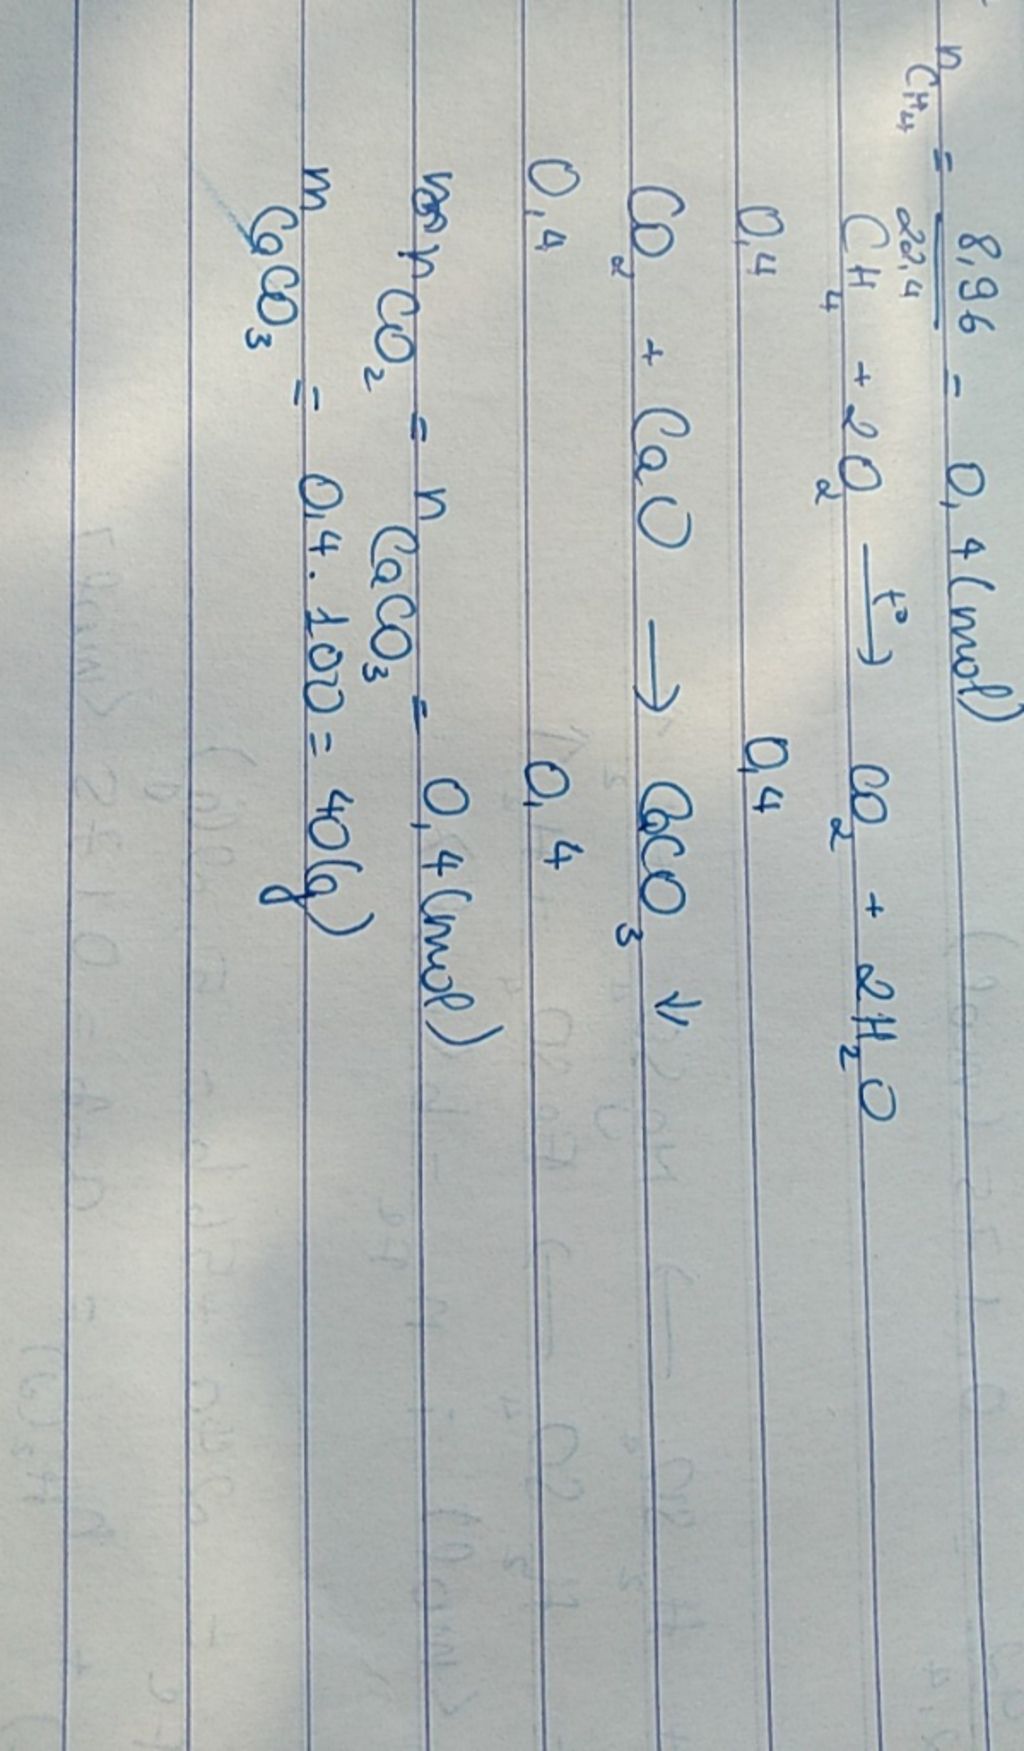 n CH₄ = 8,96 / 22,4 = 0,4 (mol)
CH₄ + 2O₂ —t°→ CO₂ + 2H₂O
0,4 0,4
CO₂ + CaO → CaCO₃ ↓
0,4 0,4
n CO₂ = n CaCO₃ = 0,4 (mol)
m CaCO₃ = 0,4 . 100 = 40 (g)